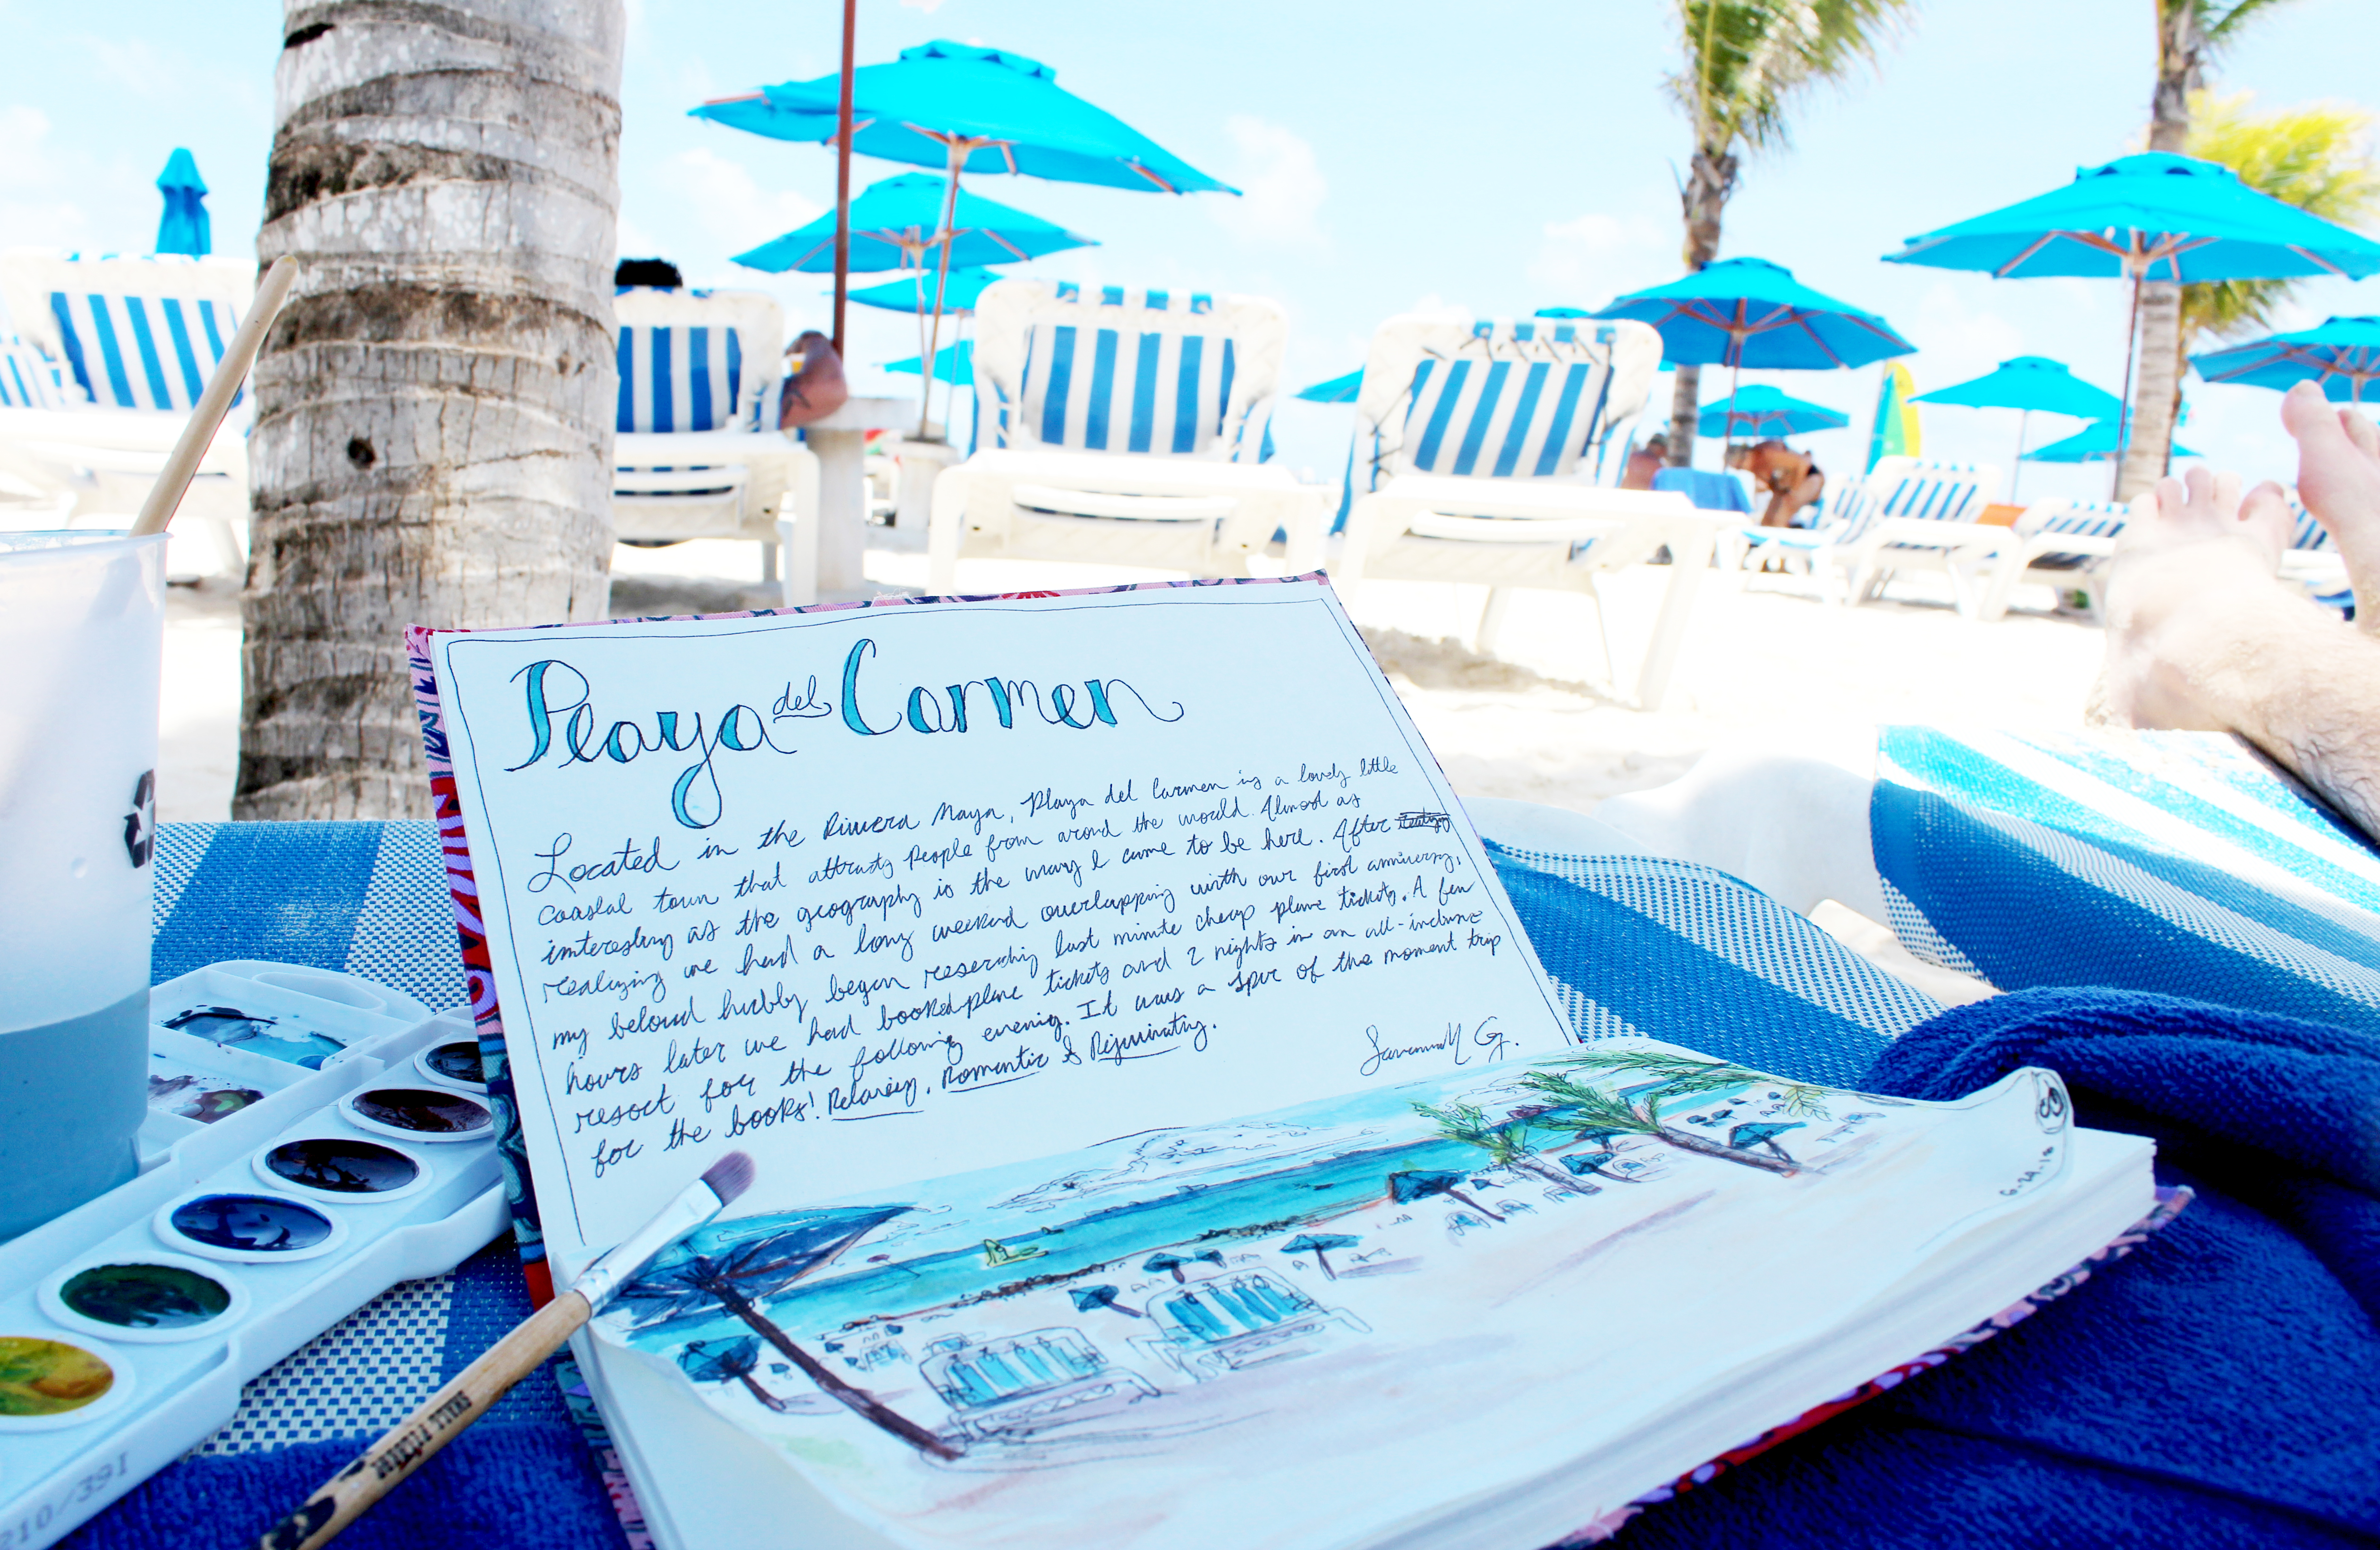 Playa del Carmen
Located in the Riviera Maya, Playa del Carmen is a lovely little
coastal town that attracts people from around the world. Almost as
interesting as the geography is the way I came to be here. After
realizing we had a long weekend overlapping with our first anniversary,
my beloved hubby began researching last minute cheap plane tickets. A few
hours later we had booked plane tickets and 2 nights in an all-inclusive
resort for the following evening. It was a spur of the moment trip
for the books! Relaxing, Romantic & Rejuvinating.
Savannah G.
210/391